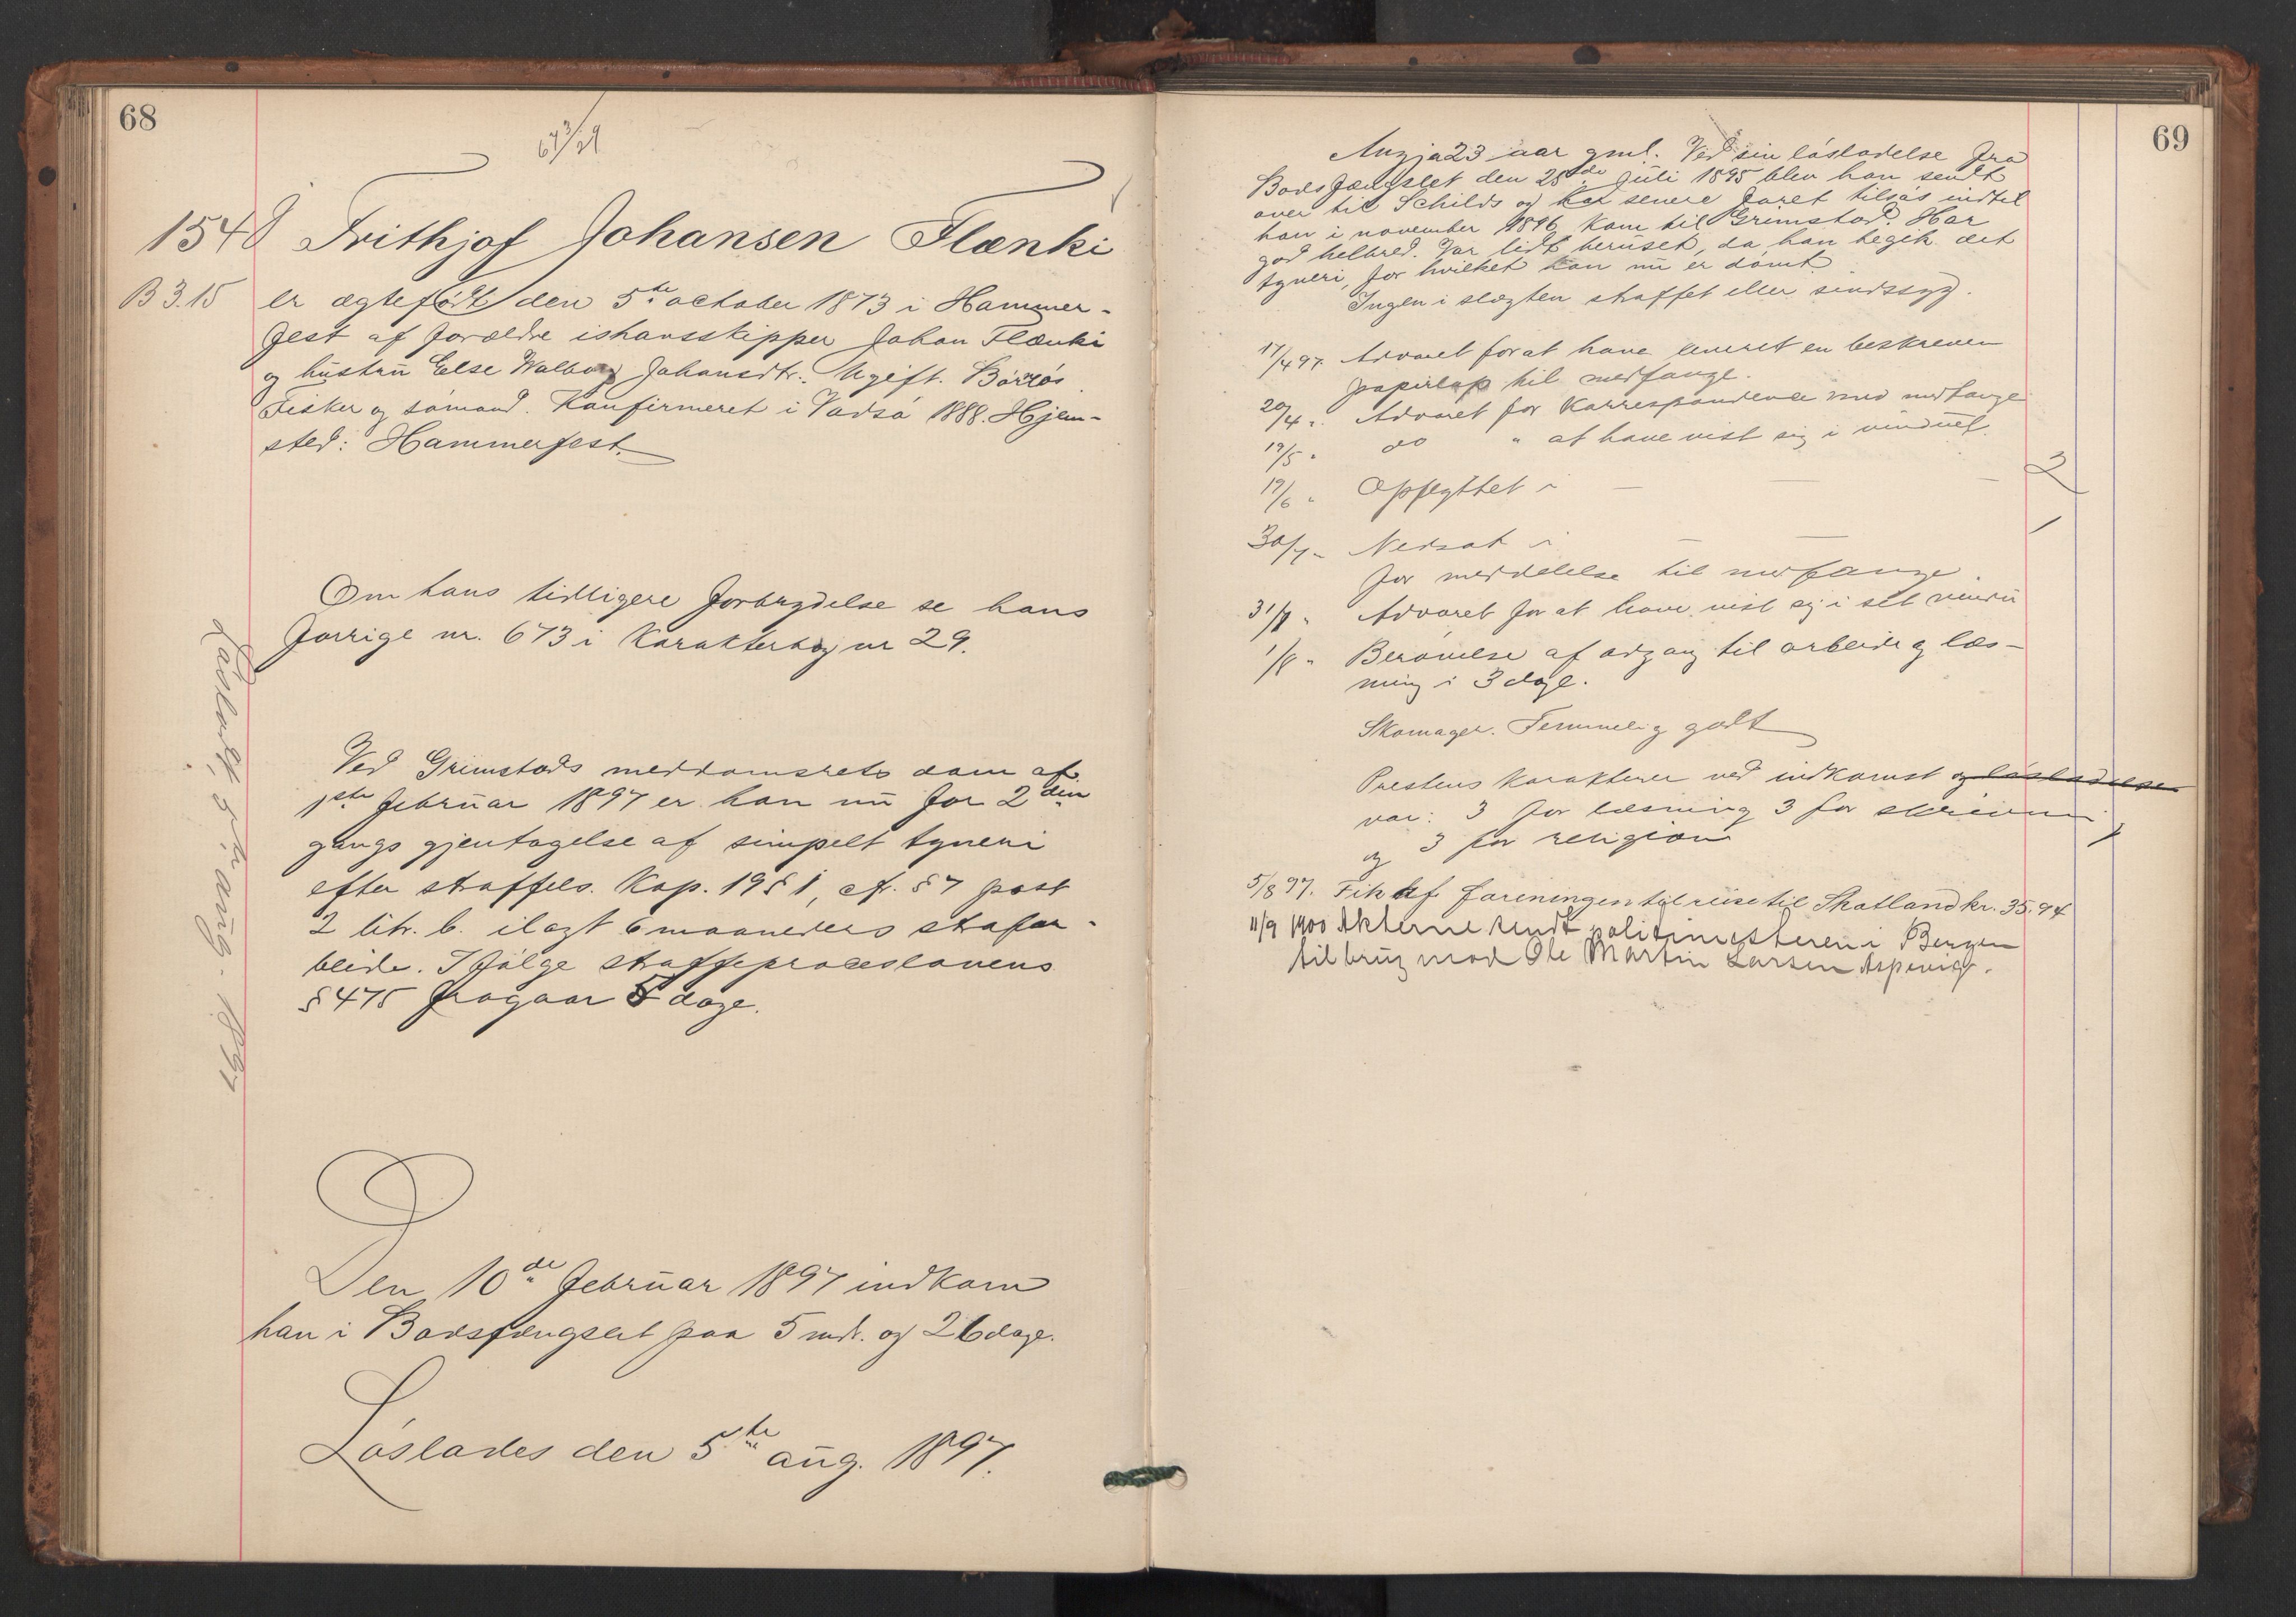 68
673/29
1540 Frithjof Johansen Flænki
B 3.15 er ægtefødt den 5te october 1873 i Hammer-
fest af forældre ishavsskipper Johan Flænki
og hustru Else Walborg Johansdtr. Ugift. Barnløs.
Fisker og sømand. Konfirmeret i Vadsø 1888. Hjem-
sted: Hammerfest.
Om hans tidligere forbrydelse se hans
forrige nr. 673 i Karakterbog nr 29.
Ved Grimstads meddomsrets dom af
1ste februar 1897 er han nu for 2den
gangs gjentagelse af simpelt tyveri
efter straffels. Kap. 19 § 1, cfr. § 7 post
2 litr. b. ilagt 6 maaneders strafar-
beide. Ifølge straffeproceslovens
§ 475 fragaar 5 dage.
Den 10de februar 1897 indkom
han i Bodsfængslet paa 5 mdr. og 26 dage.
Løslades den 5te aug. 1897.
Løsladt 5te aug. 1897
69
23 aar gml. Ved sin løsladelse fra
Bodsfængslet den 25de juli 1895 blev han sendt
over til Schilds og har senere faret tilsjøs indtil
han i november 1896 kom til Grimstad. Har
god helbred. Var lidt beruset, da han begik det
tyveri, for hvilket han nu er dømt.
Ingen i slægten straffet eller sindssyg.
17/4 97. Advaret for at have leveret en beskreven
papirlap til medfange.
20/4 " Advaret for Korrespondence med medfange
19/5 " do " at have vist sig i vinduet.
19/6 " Opflyttet i — — — 2
30/7 " Nedsat i — — 1
for meddelelse til medfange.
31/7 " Advaret for at have vist sig i sit vindu
1/8 " Berøvelse af adgang til arbeide og læs-
ning i 3 dage.
Skomager. Temmelig godt
Prestens karakterer ved indkomst og løsladelse
var: 3 for læsning 3 for skrivn
og 3 for religion
5/8 97. Fik af foreningen til reise til Skotland kr. 35.94
11/9 1900 Akterne sendt politimesteren i Bergen
til brug mod Ole Martin Larsen Aspevig.